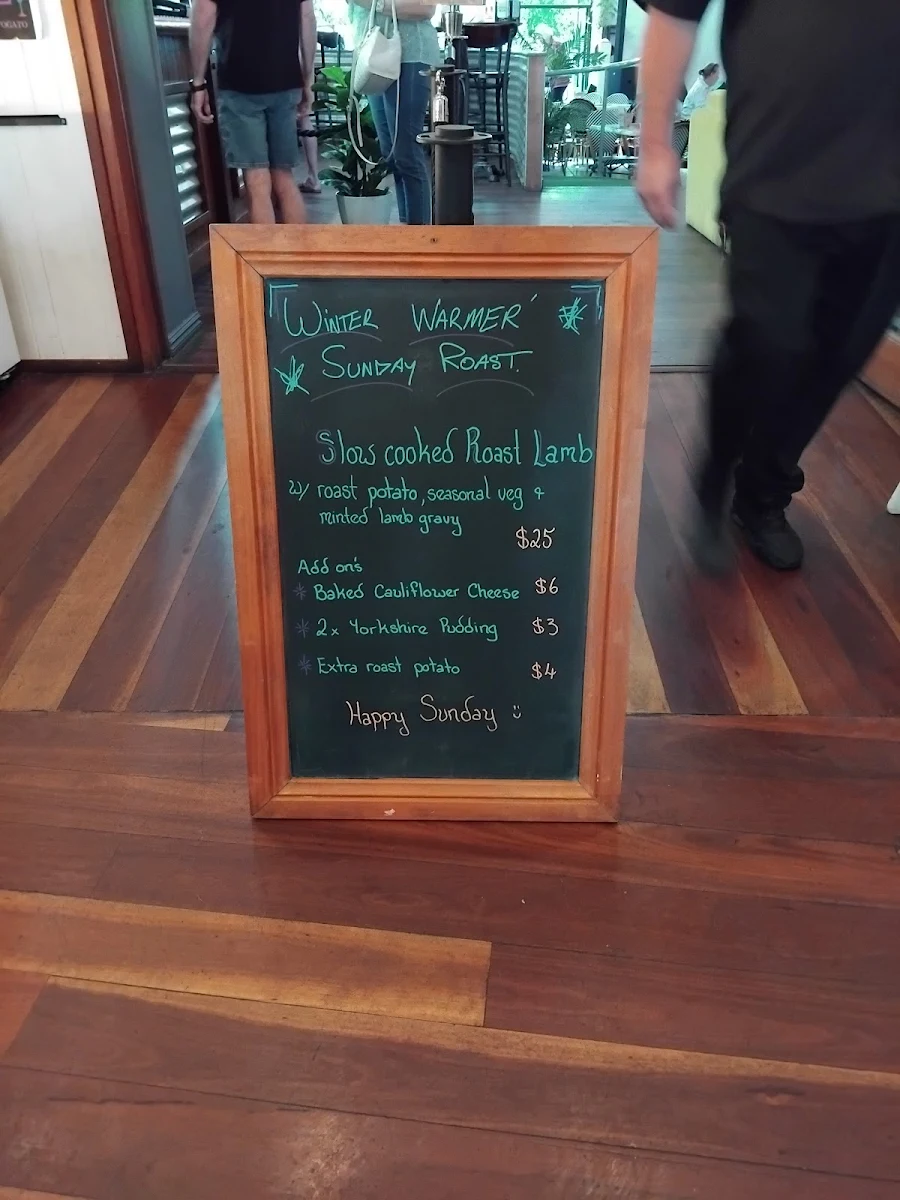 OGATO
WINTER WARMER'
SUNDAY ROAST.
Slow cooked Roast Lamb
w/ roast potato, seasonal veg +
minted lamb gravy
$25
Add on's
* Baked Cauliflower Cheese $6
* 2x Yorkshire Pudding $3
* Extra roast potato $4
Happy Sunday :)